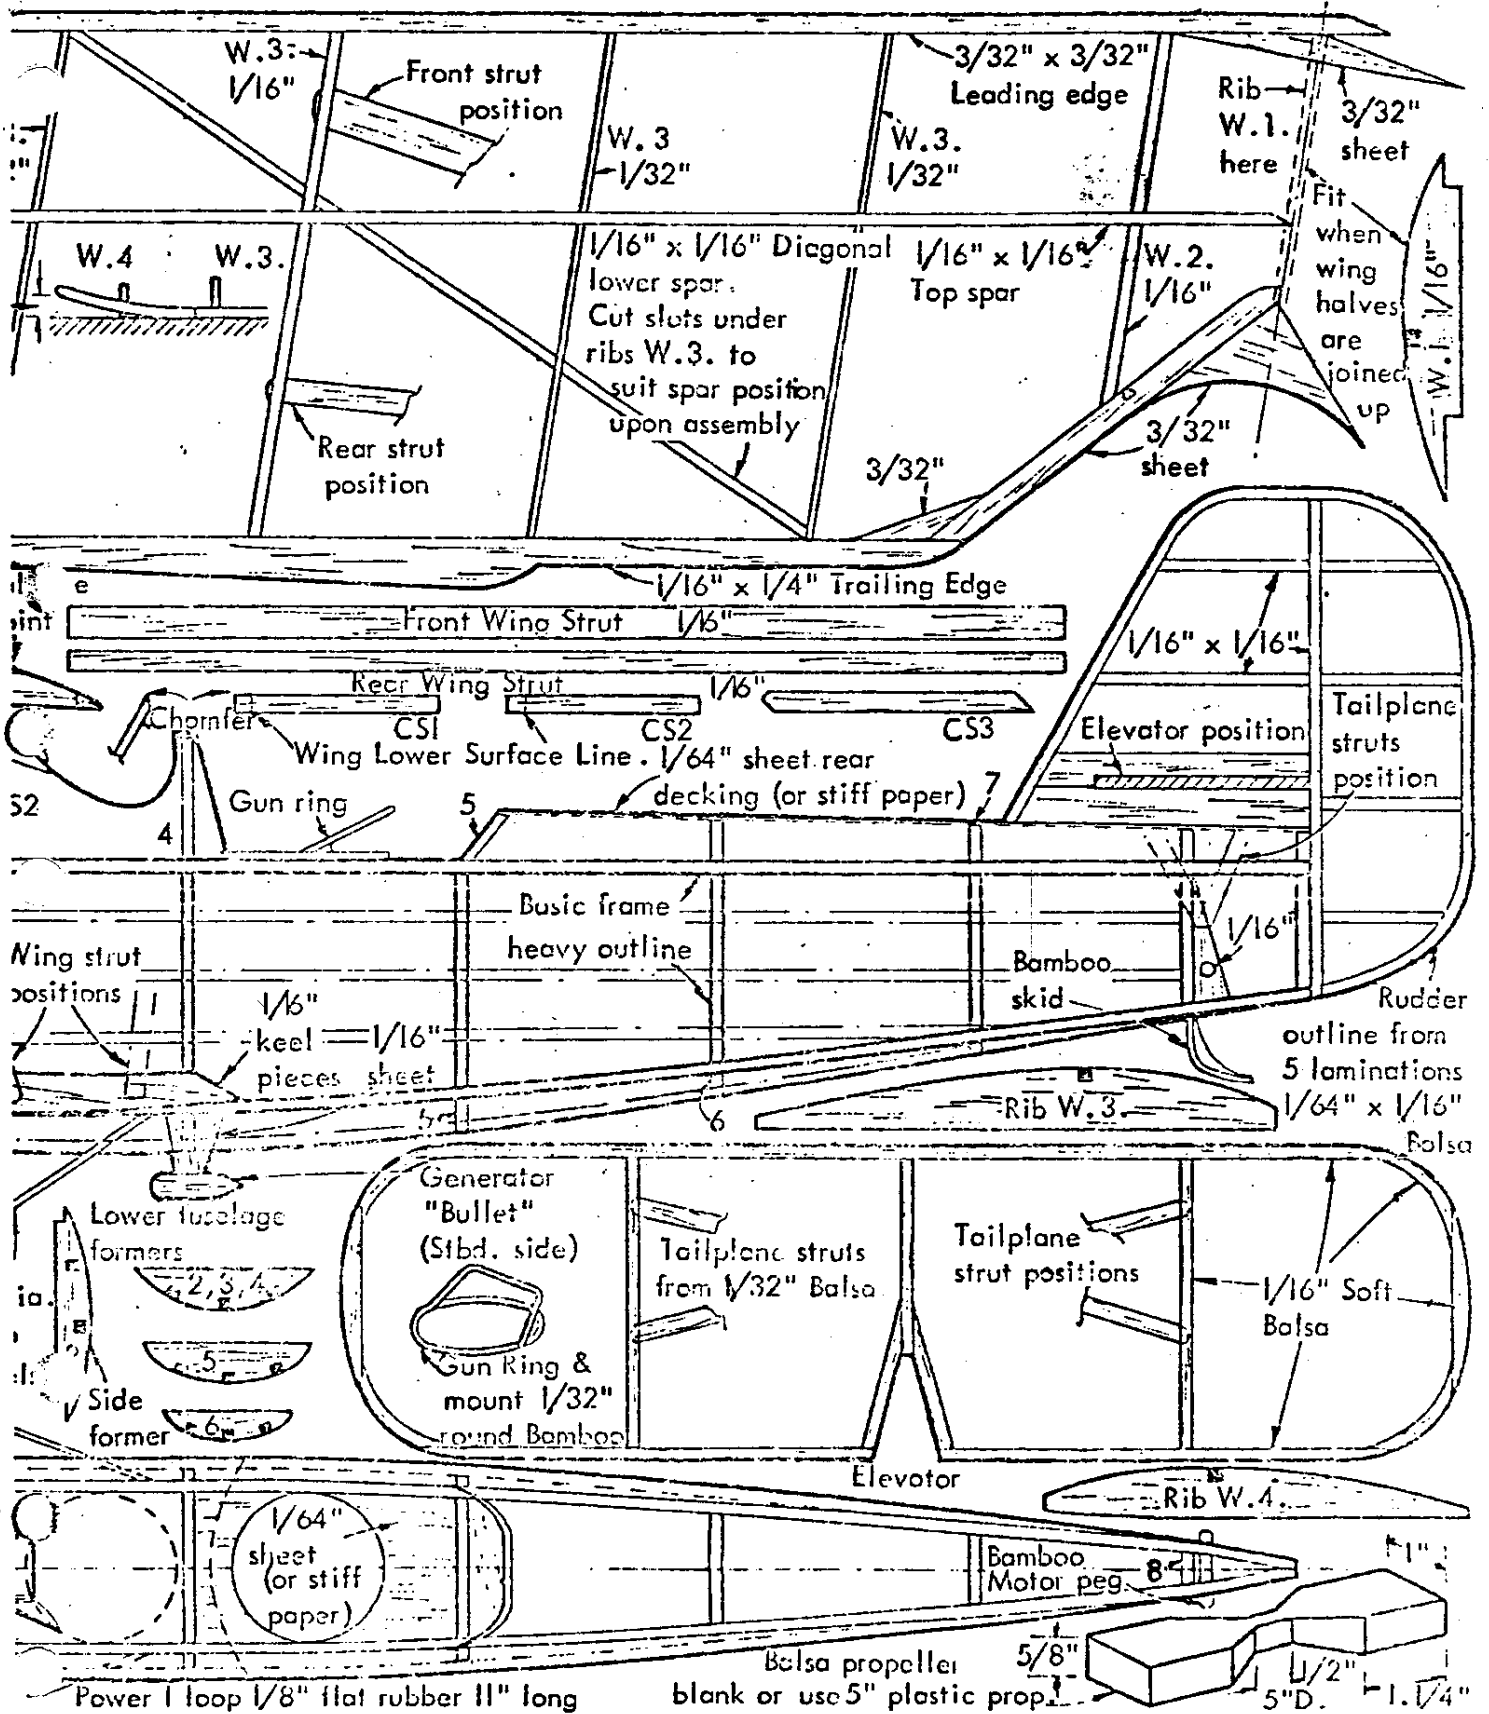 W.3.
1/16"
Front strut
position
W. 3
1/32"
3/32" x 3/32"
Leading edge
W.3.
1/32"
Rib
W.1.
here
3/32"
sheet
Fit
when
wing
halves
are
joined
up
W.1 1/16"
W.4
W.3.
1/16" x 1/16" Diagonal
lower spar.
Cut slots under
ribs W.3. to
suit spar position
upon assembly
1/16" x 1/16"
Top spar
W.2.
1/16"
Rear strut
position
3/32"
3/32"
sheet
1/16" x 1/4" Trailing Edge
e
Front Wing Strut 1/16"
Rear Wing Strut 1/16"
Chamfer
CS1
CS2
CS3
Wing Lower Surface Line.
1/64" sheet rear
decking (or stiff paper)
1/16" x 1/16"
Elevator position
Tailplane
struts
position
S2
4
Gun ring
5
7
Basic frame
heavy outline
Wing strut
positions
1/16"
keel
pieces
1/16"
sheet
5
6
Bamboo
skid
1/16"
Rudder
outline from
5 laminations
1/64" x 1/16"
Balsa
Rib W.3.
Generator
"Bullet"
(Stbd. side)
Lower fuselage
formers
2,3,4
5
6
ia.
Side
former
Gun Ring &
mount 1/32"
round Bamboo
Tailplane struts
from 1/32" Balsa
Tailplane
strut positions
1/16" Soft
Balsa
Elevator
Rib W.4.
1/64"
sheet
(or stiff
paper)
Bamboo
Motor peg
8
1"
5/8"
1/2"
5"D.
1.1/4"
Balsa propeller
blank or use 5" plastic prop.
Power 1 loop 1/8" flat rubber 11" long